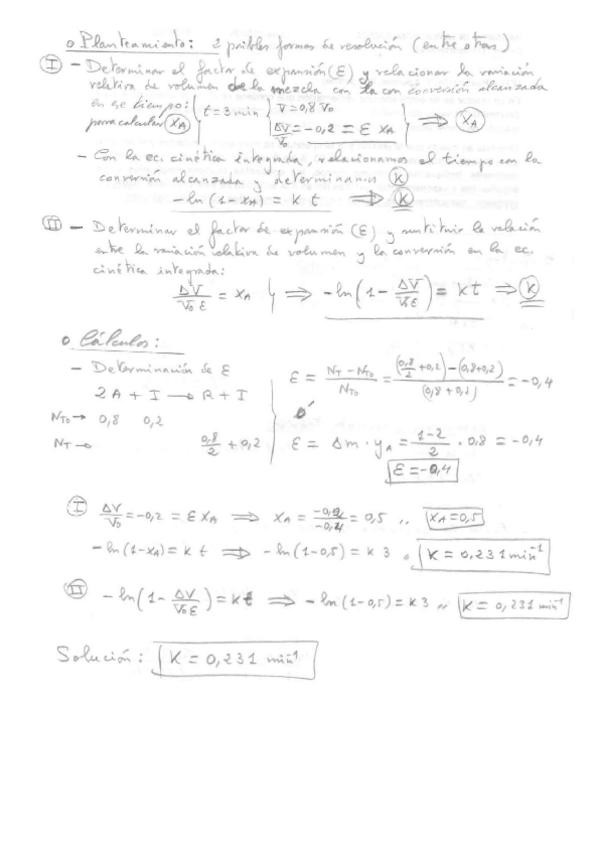 o Planteamiento: 2 posibles formas de resolución (entre otras)
I - Determinar el factor de expansión (ε) y relacionar la variación
relativa de volumen de la mezcla con la con conversión alcanzada
en ese tiempo: t = 3 min V = 0,8 V₀
para calcular X_A ΔV/V₀ = -0,2 = ε X_A ⟹ X_A
- Con la ec. cinética integrada, relacionamos el tiempo con la
conversión alcanzada y determinamos K
-ln (1-X_A) = K t ⟹ K
II - Determinar el factor de expansión (ε) y sustituir la relación
entre la variación relativa de volumen y la conversión en la ec.
cinética integrada:
ΔV/V₀ε = X_A } ⟹ -ln(1 - ΔV/V₀ε) = Kt ⟹ K
o Cálculos:
- Determinación de ε
2A + I → R + I
N_T0 → 0,8 0,2
N_T → 0,8/2 + 0,2
ε = (N_T - N_T0)/N_T0 = ((0,8/2 + 0,2) - (0,8+0,2))/(0,8 + 0,2) = -0,4
ó
ε = Δm · y_A = (1-2)/2 · 0,8 = -0,4
ε = -0,4
I ΔV/V₀ = -0,2 = ε X_A ⟹ X_A = -0,2/-0,4 = 0,5 ,, X_A = 0,5
-ln(1-X_A) = K t ⟹ -ln(1-0,5) = K 3 K = 0,231 min⁻¹
II -ln(1- ΔV/V₀ε) = Kt ⟹ -ln(1-0,5) = K3 ,, K = 0,231 min⁻¹
Solución: K = 0,231 min⁻¹